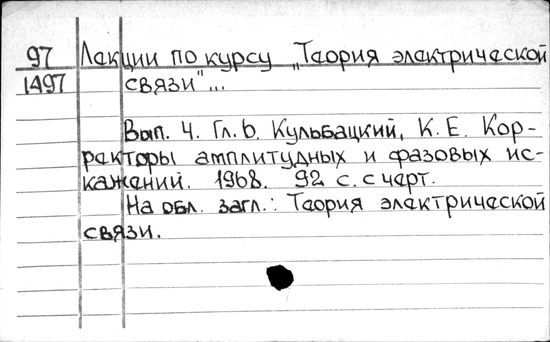 97 Лекции по курсу „Теория электрической
1497 связи"...
Вып. 4. Гл. 6. Кульбацкий, К. Е. Кор-
ректоры амплитудных и фазовых ис-
кажений. 1968. 92 с. с черт.
На обл. загл.: Теория электрической
связи.